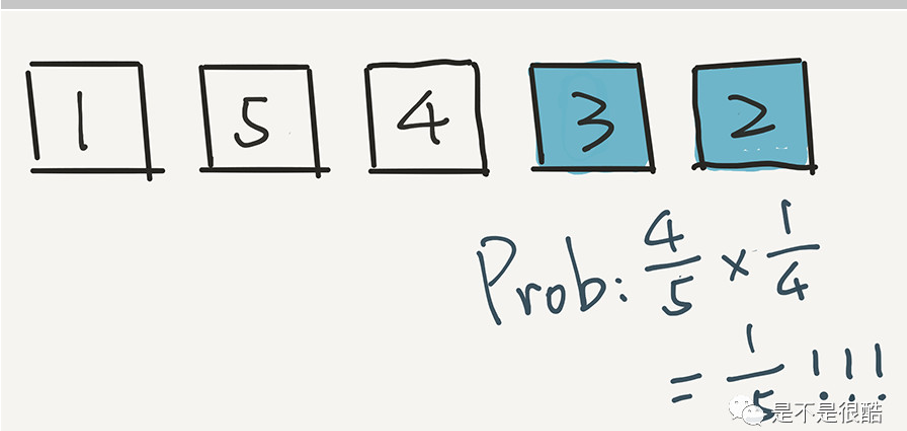 1 5 4 3 2
Prob: 4/5 × 1/4
= 1/5 !!!
是不是很酷